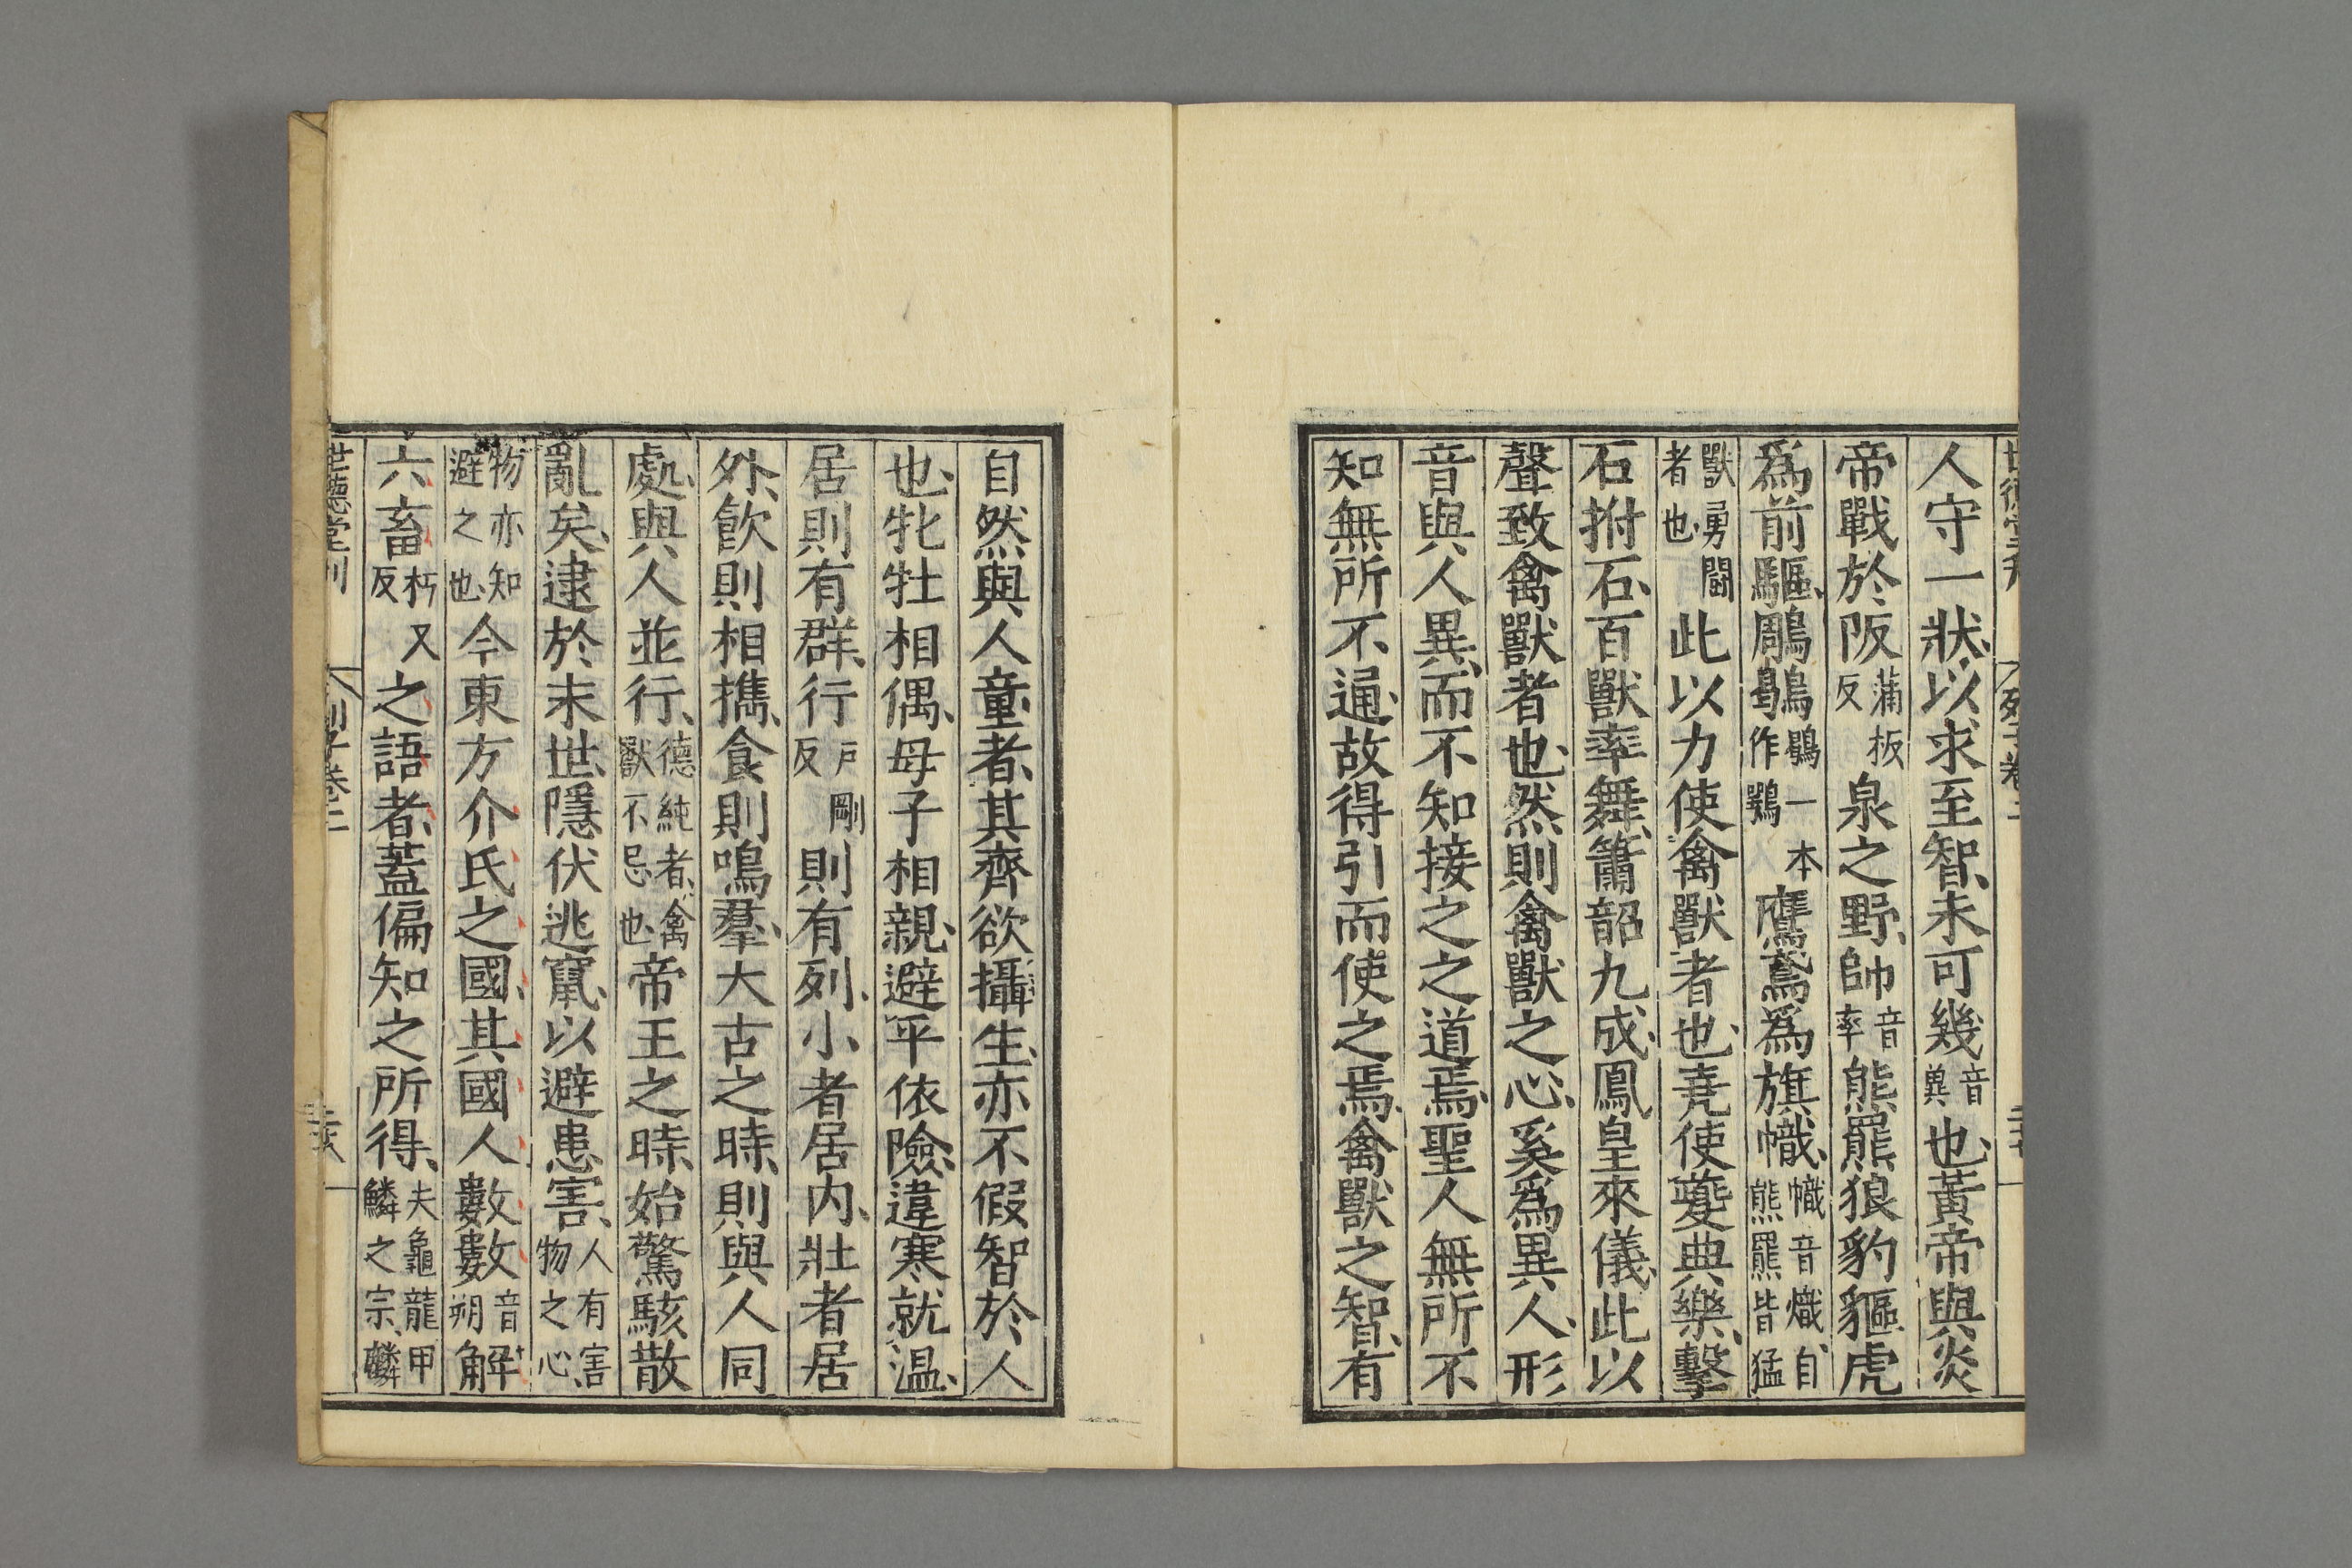 人守一狀、以求至智、未可幾音兾也、黃帝與炎
帝戰於阪蒲板反泉之野、帥音率熊羆狼豹貙虎
爲前驅、鵰鶡鶡一本作鶚鷹鳶爲旗幟、幟音熾、自熊羆皆猛
獸勇鬪者也、此以力使禽獸者也、堯使夔典樂、擊
石拊石、百獸率舞、簫韶九成、鳳皇來儀、此以
聲致禽獸者也、然則禽獸之心、奚爲異人、形
音與人異、而不知接之之道焉、聖人無所不
知無所不通、故得引而使之焉、禽獸之智、有
自然與人童者、其齊欲攝生、亦不假智於人
也、牝牡相偶、母子相親、避平依險、違寒就温、
居則有群、行戶剛反則有列、小者居内、壯者居
外、飲則相擕、食則鳴羣、大古之時、則與人同
處、與人並行、德純者、禽獸不忌也、帝王之時、始驚駭散
亂矣、逮於末世、隱伏逃竄、以避患害、人有害物之心、
物亦知避之也、今東方介氏之國、其國人數數音朔解
六畜朽又反之語者、蓋偏知之所得、夫龜龍甲鱗之宗、麟
世德堂刊
列子卷二